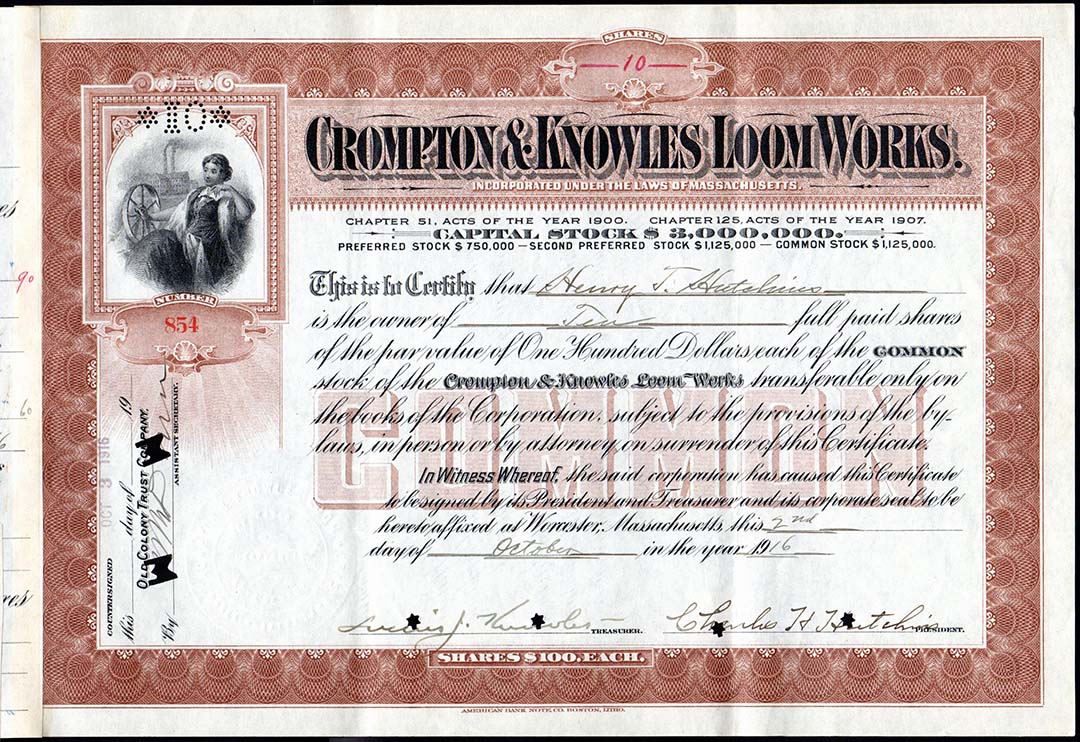 SHARES
10
*10*
CROMPTON & KNOWLES LOOM WORKS.
INCORPORATED UNDER THE LAWS OF MASSACHUSETTS.
CHAPTER 51, ACTS OF THE YEAR 1900. CHAPTER 125, ACTS OF THE YEAR 1907.
CAPITAL STOCK $ 3,000,000.
PREFERRED STOCK $ 750,000 — SECOND PREFERRED STOCK $1,125,000 — COMMON STOCK $1,125,000.
NUMBER
854
This is to Certify that Henry T. Hutchins
is the owner of Ten full paid shares
of the par value of One Hundred Dollars each of the COMMON
stock of the Crompton & Knowles Loom Works transferable only on
the books of the Corporation, subject to the provisions of the by-
laws, in person or by attorney on surrender of this Certificate.
COMMON
In Witness Whereof, the said corporation has caused this Certificate
to be signed by its President and Treasurer and its corporate seal to be
hereto affixed at Worcester, Massachusetts, this 2nd
day of October in the year 1916
COUNTERSIGNED
this day of 19
OCT 3 1916
OLD COLONY TRUST COMPANY.
By
ASSISTANT SECRETARY.
Lucius J. Knowles TREASURER.
Charles H Hutchins PRESIDENT.
SHARES $100. EACH.
AMERICAN BANK NOTE CO. BOSTON,
90
60